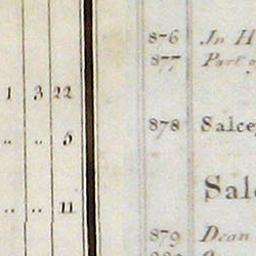 1 3 22
.. .. 5
.. .. 11
876 In H
877 Part o
878 Salcey
Salc
879 Dean